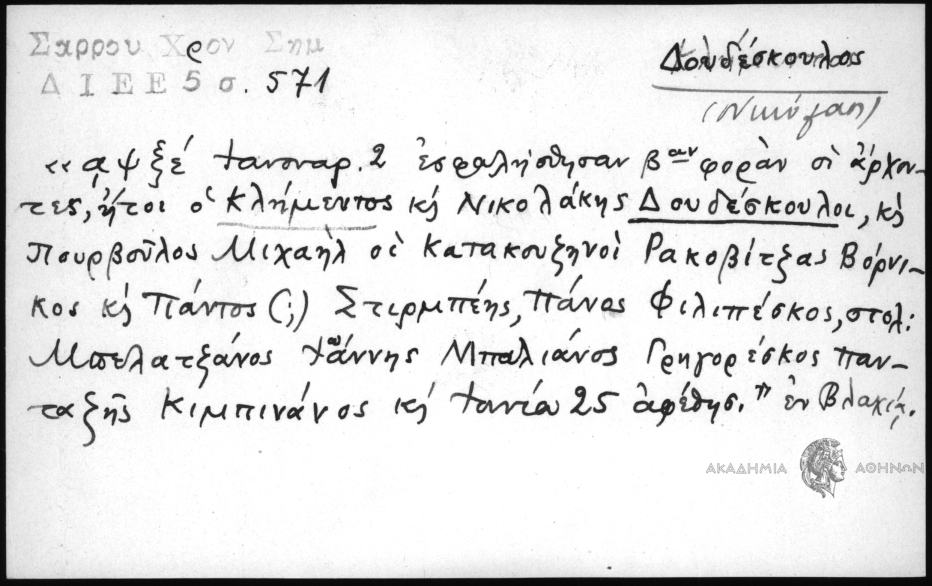 Σαρρου Χρον Σημ
Δ Ι Ε Ε 5 σ. 571
Δουδέσκουλος
(Νικόλαος)
«αψξέ Ἰανουαρ. 2 ἐσφαλήσθησαν βαν φορὰν οἱ ἄρχον-
τες, ἤτοι ὁ Κλήμεντος κὴ Νικολάκης Δουδέσκουλοι, κὴ
Πουρβοῦλος Μιχαὴλ οἱ Κατακουζηνοὶ Ρακοβίτζας Βόρνι-
κος κὴ Πάντος (;) Στιρμπέης, Πάνος Φιλιπέσκος, στολ:
Μπελατζάνος Ἰωάννης Μπαλιάνος Γρηγορέσκος Παν-
ταζῆς Κιμπινάνος κὴ 25 ἀφέθησ." ἐν Βλαχίᾳ.
ΑΚΑΔΗΜΙΑ ΑΘΗΝΩΝ